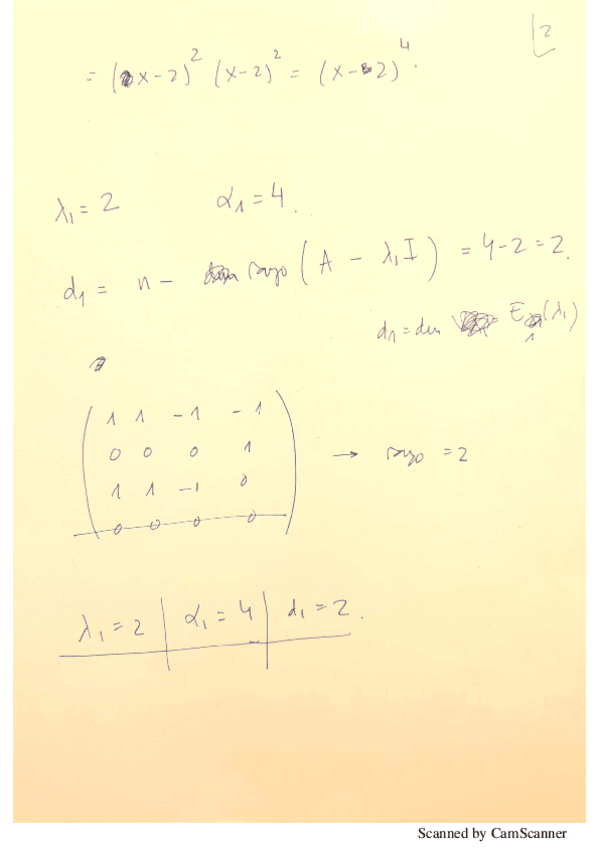 2
= (x-2)² (x-2)² = (x-2)⁴.
λ₁ = 2 α₁ = 4.
d₁ = n - rango (A - λ₁I) = 4-2 = 2.
d₁ = dim E₁(λ₁)
1 1 -1 -1
0 0 0 1
1 1 -1 0
0 0 0 0
→ rango = 2
λ₁ = 2 | α₁ = 4 | d₁ = 2.
Scanned by CamScanner